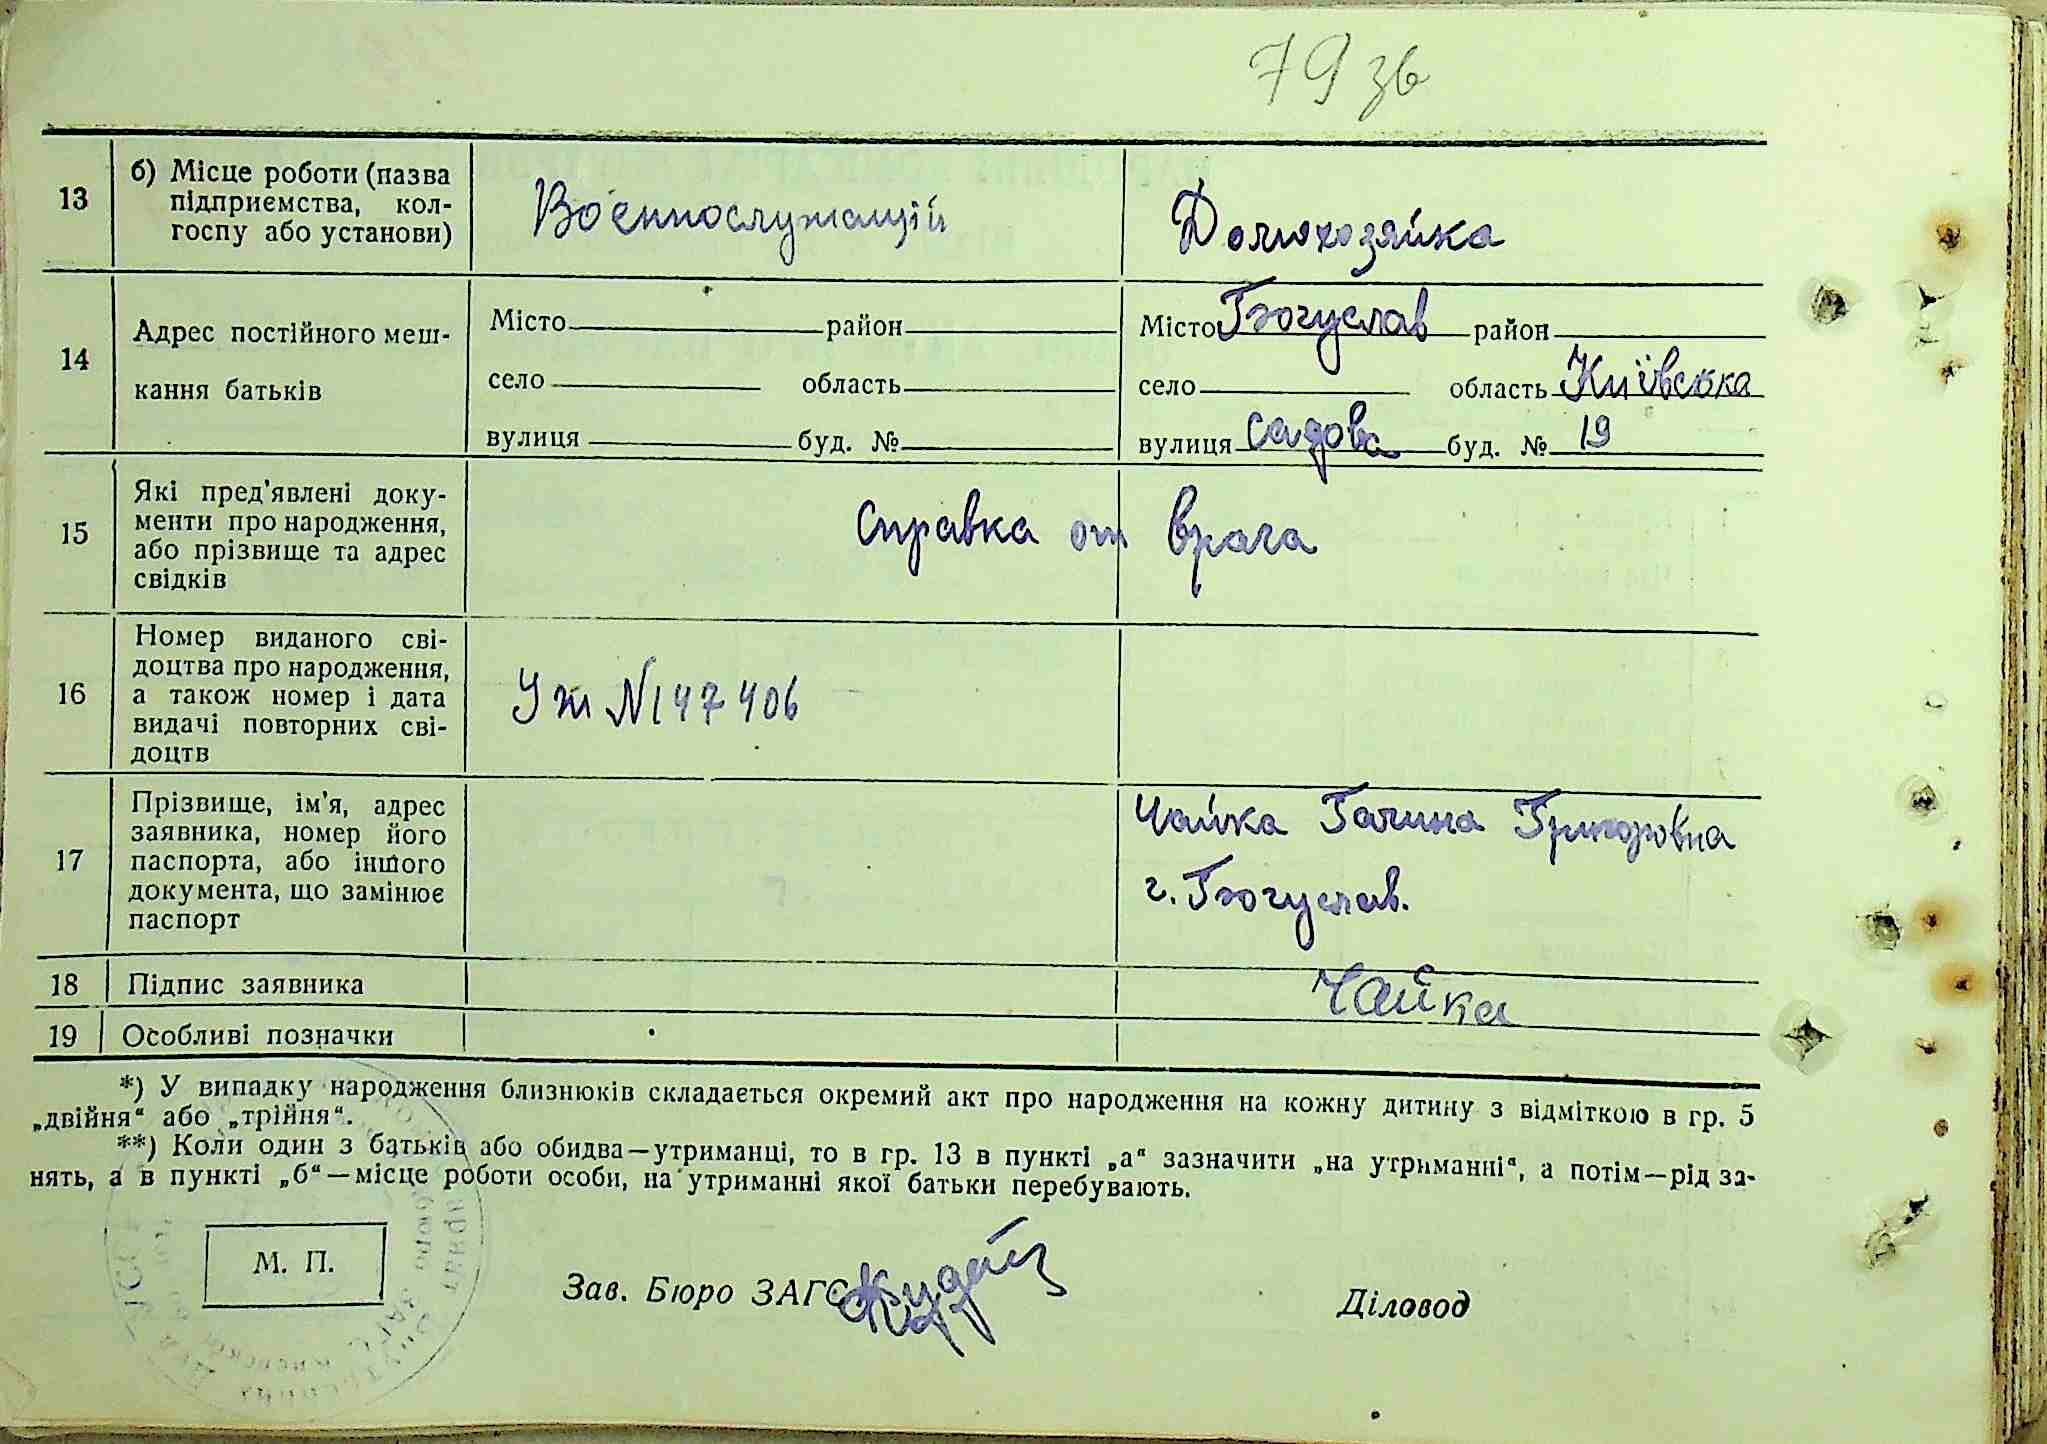 79 зв
13
б) Місце роботи (назва
підприємства, кол-
госпу або установи)
Военнослужащій
Домохозяйка
14
Адрес постійного меш-
кання батьків
Місто район
село область
вулиця буд. №
Місто Богуслав район
село область Київська
вулиця садова буд. № 19
15
Які пред'явлені доку-
менти про народження,
або прізвище та адрес
свідків
Справка от врача
16
Номер виданого сві-
доцтва про народження,
а також номер і дата
видачі повторних сві-
доцтв
Уж № 147406
17
Прізвище, ім'я, адрес
заявника, номер його
паспорта, або іншого
документа, що замінює
паспорт
Чайка Галина Григоровна
г. Богуслав.
18
Підпис заявника
Чайка
19
Особливі позначки
*) У випадку народження близнюків складається окремий акт про народження на кожну дитину з відміткою в гр. 5
„двійня“ або „трійня“.
**) Коли один з батьків або обидва—утриманці, то в гр. 13 в пункті „а“ зазначити „на утриманні“, а потім—рід за-
нять, а в пункті „б“—місце роботи особи, на утриманні якої батьки перебувають.
М. П.
Зав. Бюро ЗАГС
Діловод